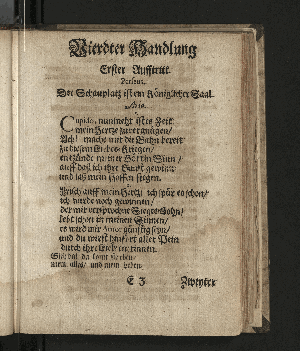 Vierdter Handlung
Erster Aufftritt.
Perseus.
Der Schauplatz ist ein Königlicher Saal.
Aria.
Cupido, nunmehr ist es Zeit
mein Hertze zu vergnügen/
Ach! mache mir die Bahn bereit
zu diesem Liebes-Kriegen/
entzünde meiner Göttin Sinn/
auff daß ich ihre Gunst gewinn
und laß mein Hoffen siegen.
Frisch auff mein Hertz, ich spür es schon/
ich werde noch gewinnen/
der mir versprochne Sieges-Lohn/
lebt schon in meinen Sinnen/
es wird mir Amor günstig seyn/
und du wirst hinfort aller Pein
durch ihre Lieb entrinnen.
mein alles/ und mein Leben.
E 3 Zweyter